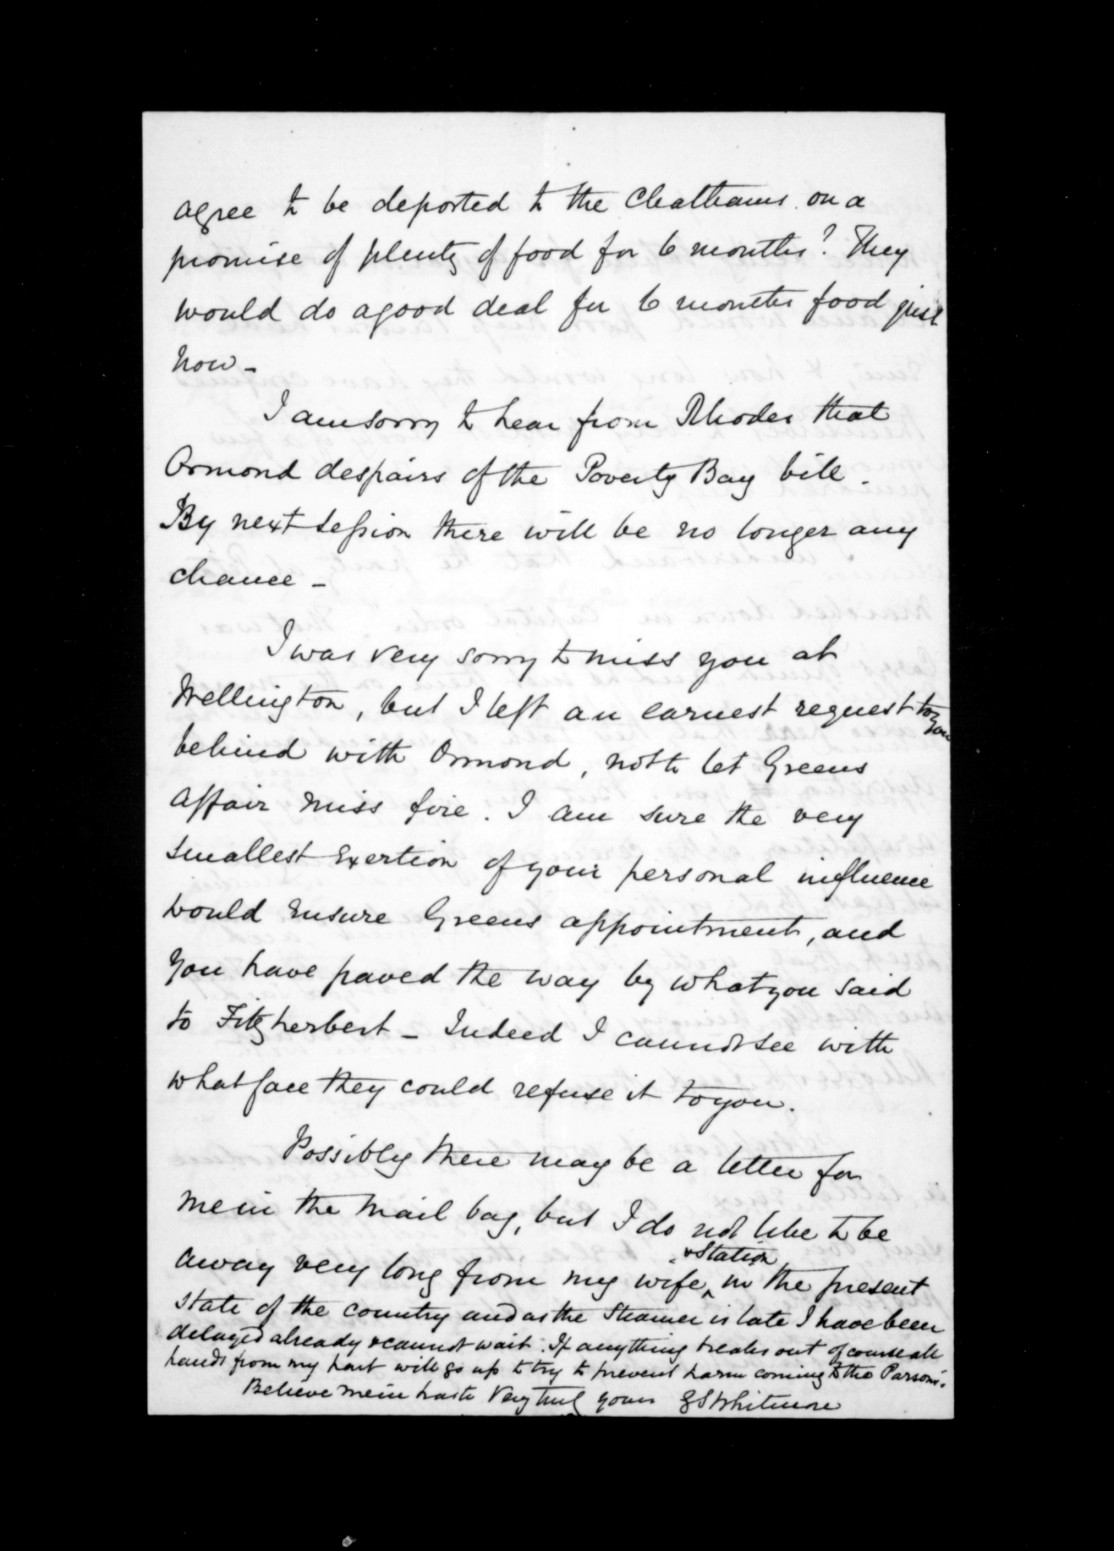 agree to be deported to the Chathams on a
promise of plenty of food for 6 months? They
would do a good deal for 6 months food just
now -
I am sorry to hear from Rhodes that
Ormond despairs of the Poverty Bay bill.
By next Session there will be no longer any
chance -
I was very sorry to miss you at
Wellington, but I left an earnest request to you
behind with Ormond, not to let Greens
affair miss fire. I am sure the very
smallest exertion of your personal influence
would ensure Greens appointment, and
you have paved the way by what you said
to Fitzherbert - Indeed I cannot see with
what face they could refuse it to you.
Possibly there may be a letter for
me in the mail bag, but I do not like to be
& Station
away very long from my wife ^ in the present
state of the country and as the Steamer is late I have been
delayed already & cannot wait. If anything breaks out of course all
hands from my part will go up to try to prevent harm coming to the Parsons.
Believe me in haste Very truly yours GSWhitmore